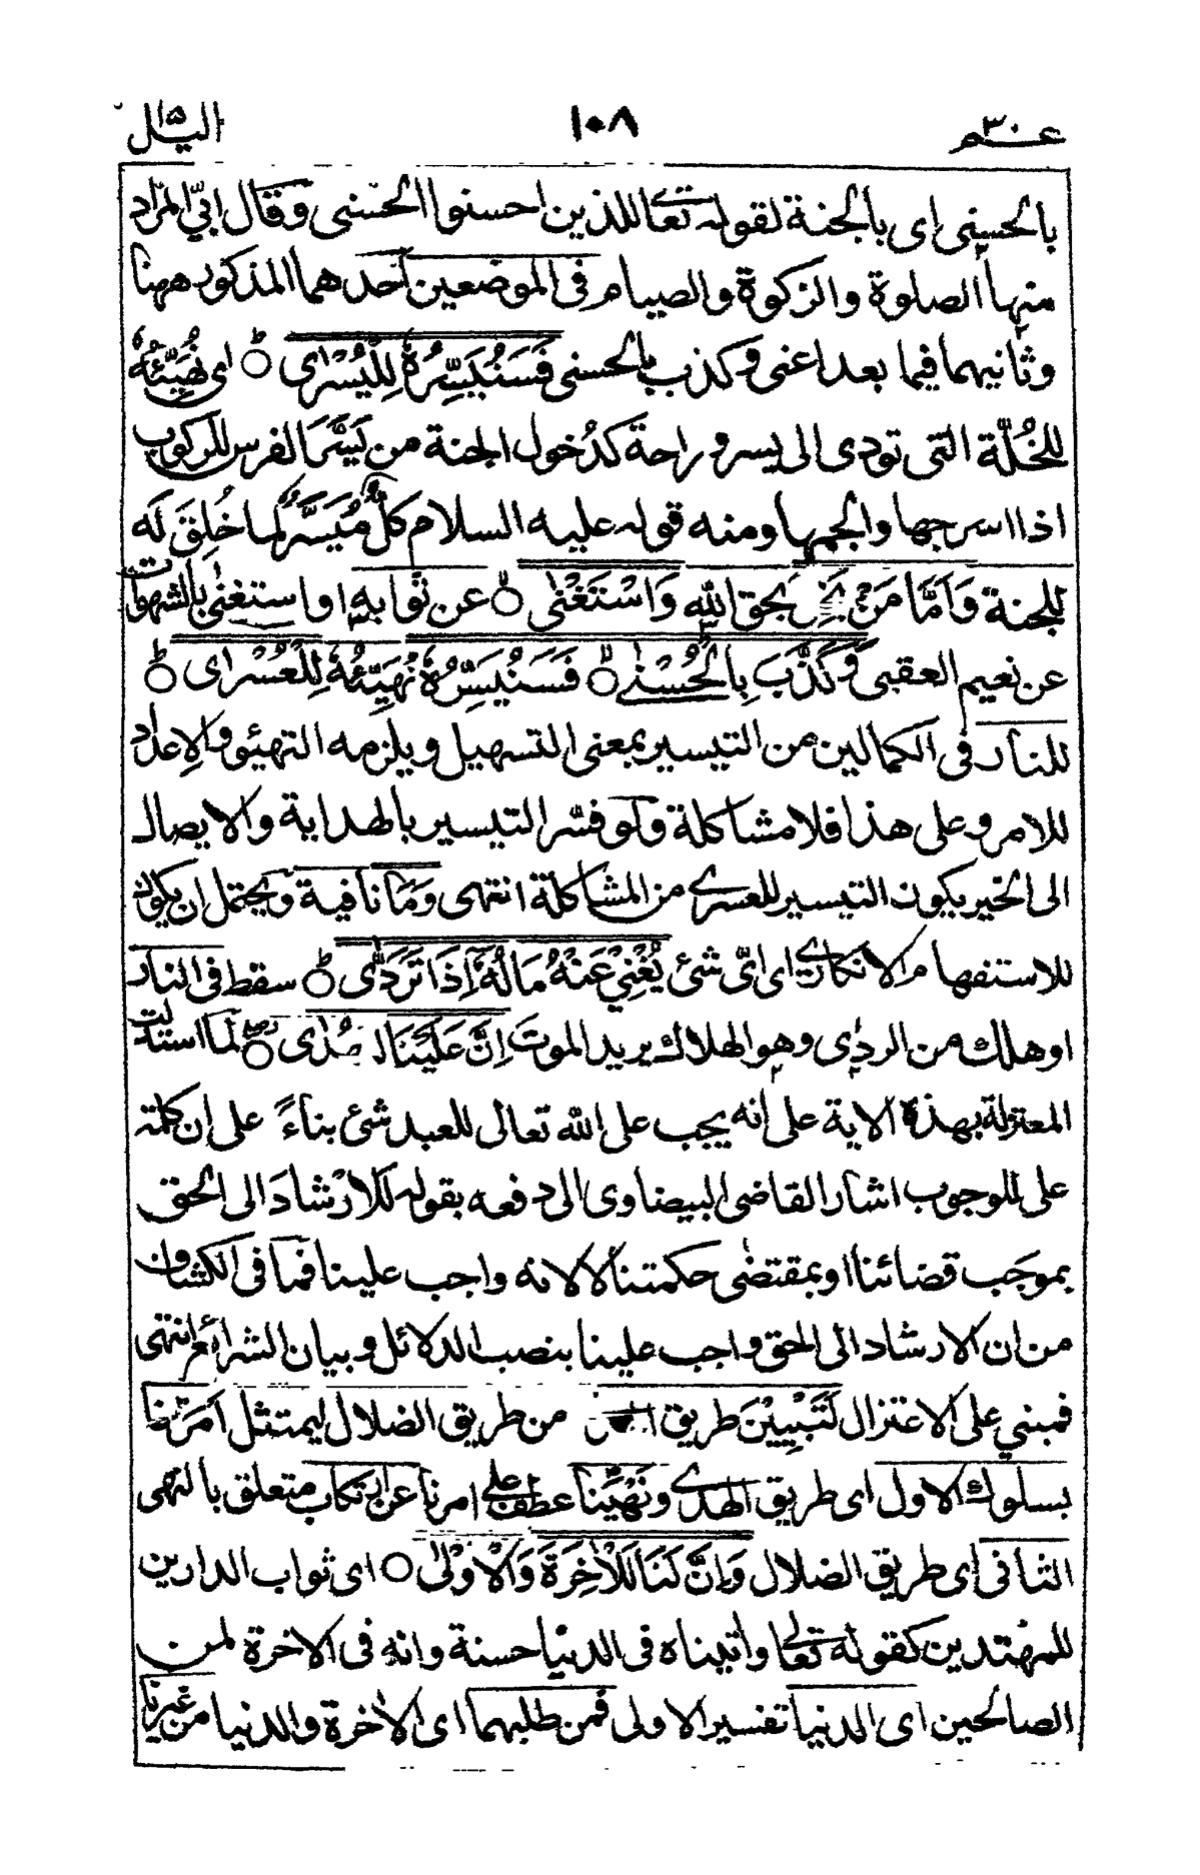 عـم ٣٠ ١٠٨ اليل
بالحسنى اى بالجنة لقوله تعالى للذين احسنوا الحسنى وقال ابىّ المراد
منها الصلوة والزكوة والصيام فى الموضعين احدهما المذكور ههنا
وثانيهما فيما بعد اعنى وكذب بالحسنى فَسَنُيَسِّرُهٗ لِلْيُسْرٰى ۝ اى نُهَيِّئُهٗ
للخُلَّة التى تودى الى يسر وراحة كدُخول الجنة من يَسَّرَ الفرس للركوب
اذا اسرجها والجمها ومنه قوله عليه السلام كلٌّ مُيَسَّرٌ لما خُلِقَ لَه
للجنة وَاَمَّا مَنْۢ بَخِلَ بحق الله وَاسْتَغْنٰى ۝ عن ثوابه او استغنى بالشهوات
عن نعيم العقبى وَكَذَّبَ بِالْحُسْنٰى ۝ فَسَنُيَسِّرُهٗ نُهَيِّئُهٗ لِلْعُسْرٰى ۝
للنار فى الكمالين من التيسير بمعنى التسهيل ويلزمه التهيئو والاعداد
للامر وعلى هذا فلا مشاكلة ولو فسّر التيسير بالهداية والايصال
الى الخير يكون التيسير للعسرى من المشاكلة انتهى وَمَا نافية ويحتمل ان يكون
للاستفهام الانكارى اى اىّ شئ يُغْنِيْ عَنْهُ مَالُهٗٓ اِذَا تَرَدّٰى ۝ سقط فى النار
او هلك من الردٰى وهو الهلاك يريد الموت اِنَّ عَلَيْنَا لَلْهُدٰى ۝ لما استدلت
المعتزلة بهذه الاية على انه يجب على الله تعالى للعبد شئ بناءً على ان كلمة
على للوجوب اشار القاضى البيضاوى الى دفعه بقوله للارشاد الى الحق
بموجَب قضائنا او بمقتضٰى حكمتنا لا لانه واجب علينا فما فى الكشاف
من ان الارشاد الى الحق واجب علينا بنصب الدلائل وبيان الشرائع انتهى
فمبني على الاعتزال لَتَبْيِيْنَ طريق من طريق الضلال ليمتثل امرنا
بسلوك الاول اى طريق الهدى ونهينا عطف على امرنا عن ارتكاب متعلق بالنهى
الثانى اى طريق الضلال وَاِنَّ لَنَا لَلْاٰخِرَةَ وَالْاُوْلٰى ۝ اى ثواب الدارين
للمهتدين كقوله تعالى واتيناه فى الدنيا حسنة وانه فى الاخرة لمن
الصالحين اى الدنيا تفسير الاولى فمن طلبهما اى الاٰخرة والدنيا من غيرنا